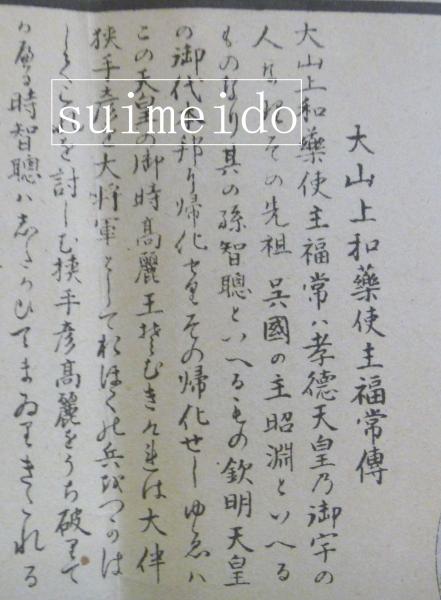 大山上和藥使主福常傳
大山上和藥使主福常ハ孝德天皇乃御宇の
人なりその先祖呉國の主昭淵といへる
ものなり其の孫智聰といへるもの欽明天皇
の御代 邦に帰化せりその帰化せしゆゑハ
この天皇の御時高麗王そむきければ大伴
狭手彦を大将軍としておほくの兵をつかは
して を討しむ狭手彦高麗をうち破りて
かへる時智聰ハしたかひてまゐりきたれる
suimeido